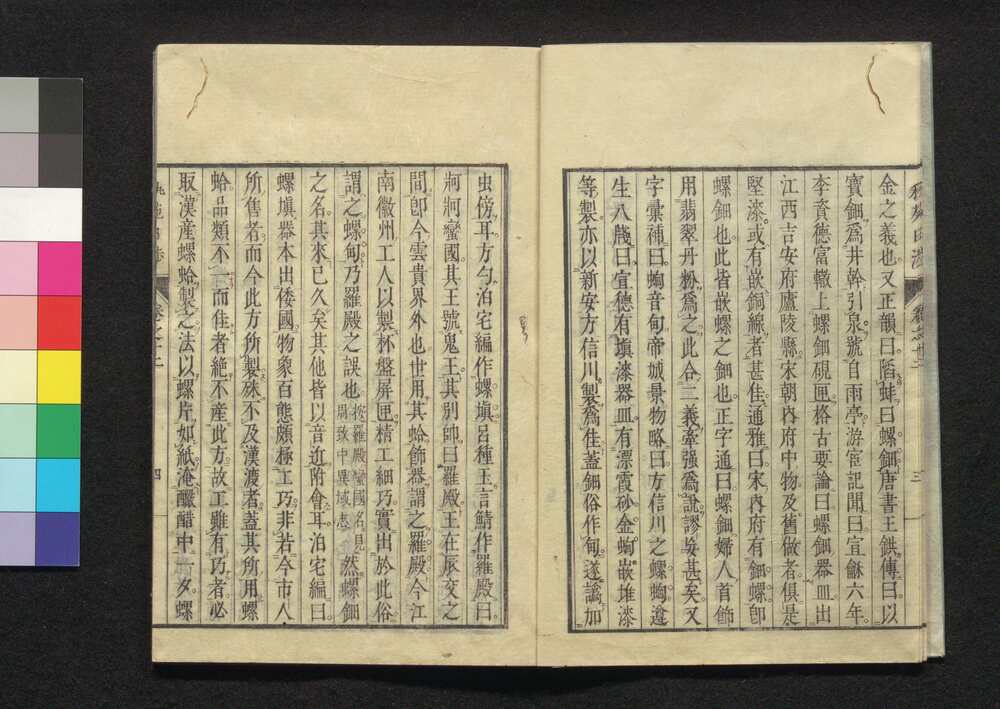 金之義也又正韻曰陷蚌曰螺鈿唐書王鉷傳曰以
寶鈿爲井幹引泉號自雨亭游宦記聞曰宣龢六年
李資德富轍上螺鈿硯匣格古要論曰螺鈿器皿出
江西吉安府廬陵縣宋朝內府中物及舊做者俱是
堅漆或有嵌銅線者甚佳通雅曰宋內府有鈿螺卽
螺鈿也此皆嵌螺之鈿也正字通曰螺鈿婦人首飾
用翡翠丹粉爲之此合二義牽强爲說謬妄甚矣又
字彙補曰蜔音甸帝城景物略曰方信川之螺蜔邊
生八戲曰宣德有塡漆器皿有漂霞砂金蜔嵌堆漆
等製亦以新安方信川製爲佳蓋鈿俗作甸遂譌加
三
虫傍耳方勺泊宅編作螺塡呂種玉言鯖作羅殿曰
牁牁蠻國其王號鬼王其別帥曰羅殿王在辰交之
間卽今雲貴界外也世用其蛤飾器謂之羅殿今江
南徽州工人以製杯盤屏匣精工細巧實出於此俗
謂之螺甸乃羅殿之誤也按羅殿蠻國名見眉致中異域志然螺鈿
之名其來已久矣其他皆以音近附會耳泊宅編曰
螺塡器本出倭國物象百態頗極工巧非若今市人
所售者而今此方所製殊不及漢渡者蓋其所用螺
蛤品類不一而佳者絕不產此方故工雖有巧者必
取漢産螺蛤製之法以螺片如紙淹釅醋中一夕螺
四